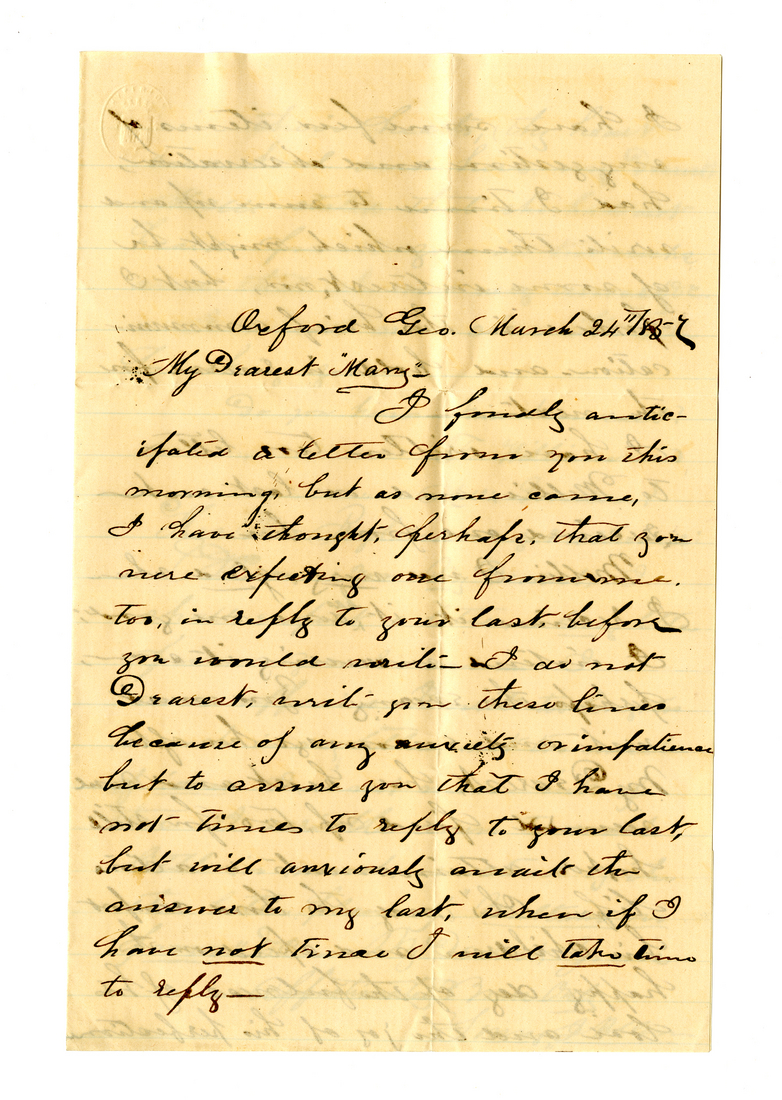 Oxford Geo. March 24"/1857
My Dearest "Mary"—
I fondly antic-
ipated a letter from you this
morning, but as none came,
I have thought, perhaps, that you
were expecting one from me.
too, in reply to your last, before
you would write— I do not
Dearest, write you these lines
because of any anxiety or impatience
but to assure you that I have
not times to reply to your last,
but will anxiously await the
answer to my last, when if I
have not time I will take time
to reply—